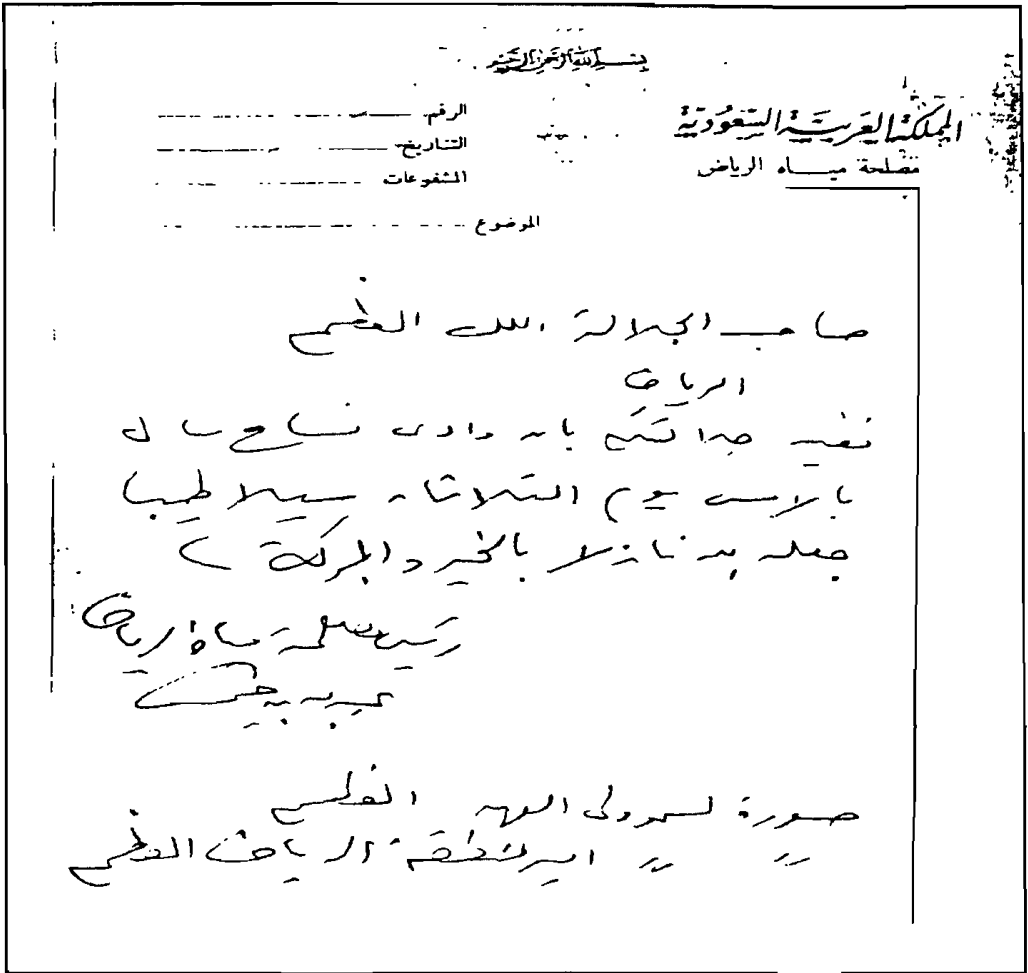 بسم الله الرحمن الرحيم
المملكة العربية السعودية
مصلحة مياه الرياض
الرقم
التاريخ
المشفوعات
الموضوع
صاحب الجلالة الملك المعظم
الرياض
نفيد جلالتكم بان وادى نساح سال
بالامس يوم الثلاثاء سيلا طيبا
جعله الله نازلا بالخير والبركة
رئيس مصلحة مياه الرياض
صورة لسمو ولى العهد المعظم
" " امير منطقة الرياض المعظم